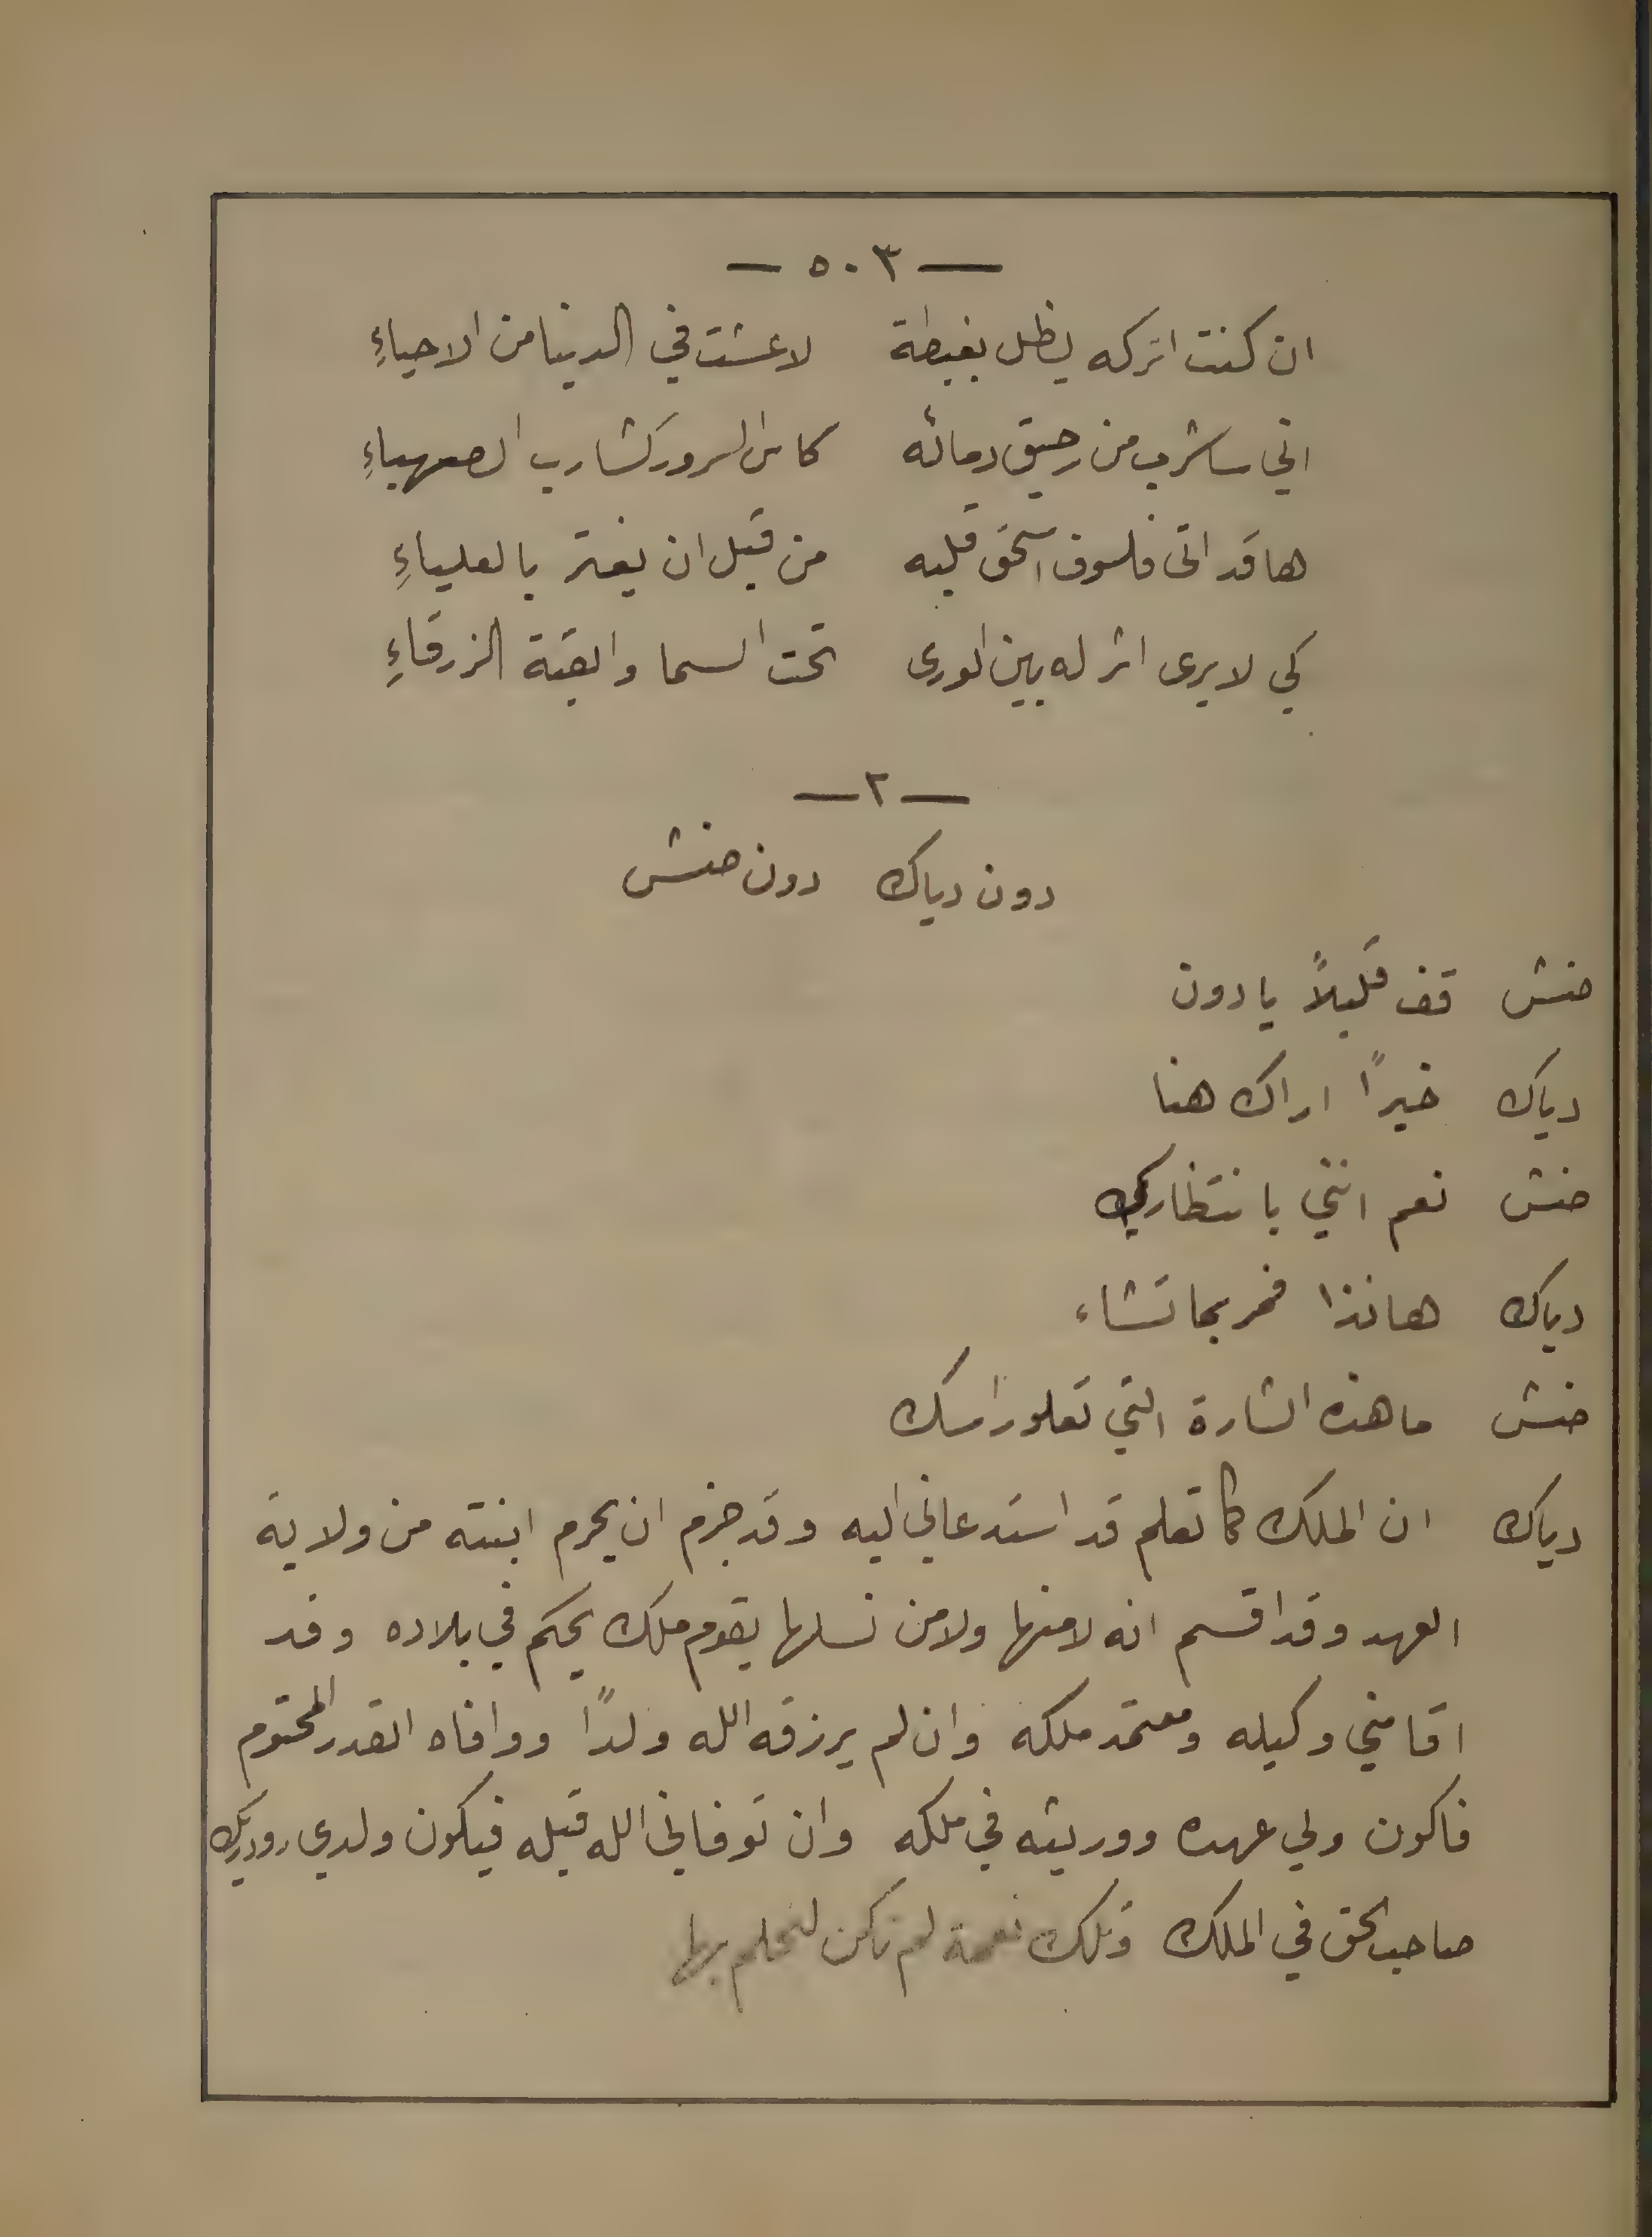 — ٥٠٣ —
ان كنت اتركه يظل بغبطة لا عشت في الدينا من الاحياءِ
اني ساشرب من رحيق دمائه كاس السرور كشارب الصهباءِ
ها قد اتى فلسوف اسحق قلبه من قبل ان يغتر بالعلياءِ
كي لا يرى اثر له بين الورى تحت السما والقبة الزرقاءِ
— ٢ —
دون دياك دون صنش
صنش قف قليلاً يا دون
دياك خيرًا اراك هنا
صنش نعم انني بانتظارك
دياك هانذا فمر بما تشاء
صنش ما هذه الشارة التي تعلو راسك
دياك ان الملك كما تعلم قد استدعاني اليه وقد جزم ان يحرم ابنته من ولاية
العهد وقد اقسم انه لا منها ولا من نسلها يقوم ملك يحكم في بلاده وقد
اقامني وكيله ومعتمد ملكه وان لم يرزقه الله ولدًا ووافاه القدر المحتوم
فاكون ولي عهده ووريثه في ملكه وان توفاني الله قبله فيكون ولدي رودريك
صاحب الحق في الملك وتلك نعمة لم تكن لنحلم بها